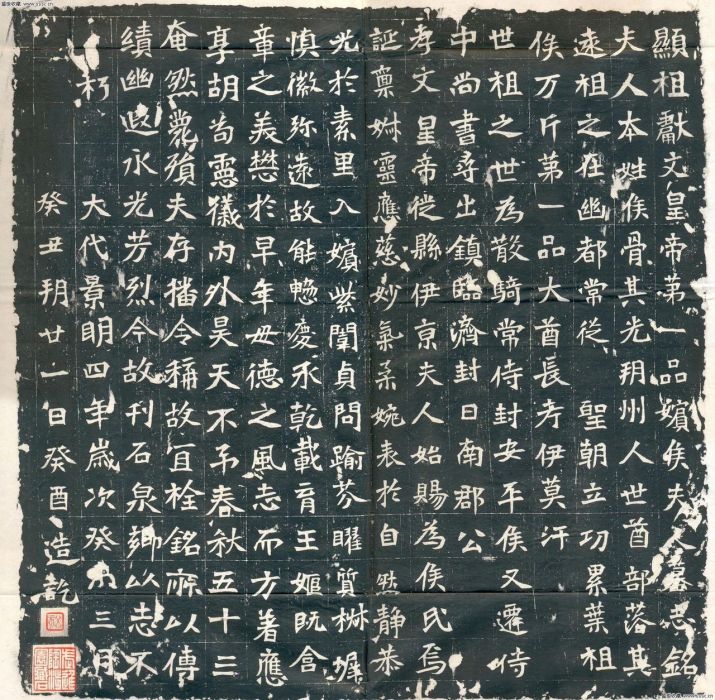 顯祖獻文皇帝第一品嬪侯夫人墓志銘
夫人本姓侯骨其先朔州人世酋部落其
遠祖之在幽都常從 聖朝立功累葉祖
俟万斤第一品大酋長考伊莫汗
世祖之世為散騎常侍封安平侯又遷侍
中尚書尋出鎮臨濟封日南郡公
孝文皇帝徙縣伊京夫人始賜為侯氏焉
誕稟姝靈應慈妙氣柔婉表於自然靜恭
光於素里入嬪紫闈貞問踰芬曜質椒墀
慎徽弥遠故能惣慶承乾載育王姬既含
章之美懋於早年毋德之風志而方著應
享胡耇靈儀內外昊天不予春秋五十三
奄然薨殞夫存播令稱故宜銓銘所以傳
績幽遐永光芳烈今故刊石泉鄉以志不
朽 大代景明四年歲次癸未三月
癸丑朔廿一日癸酉造訖
盛世收藏 www.sssc.cn